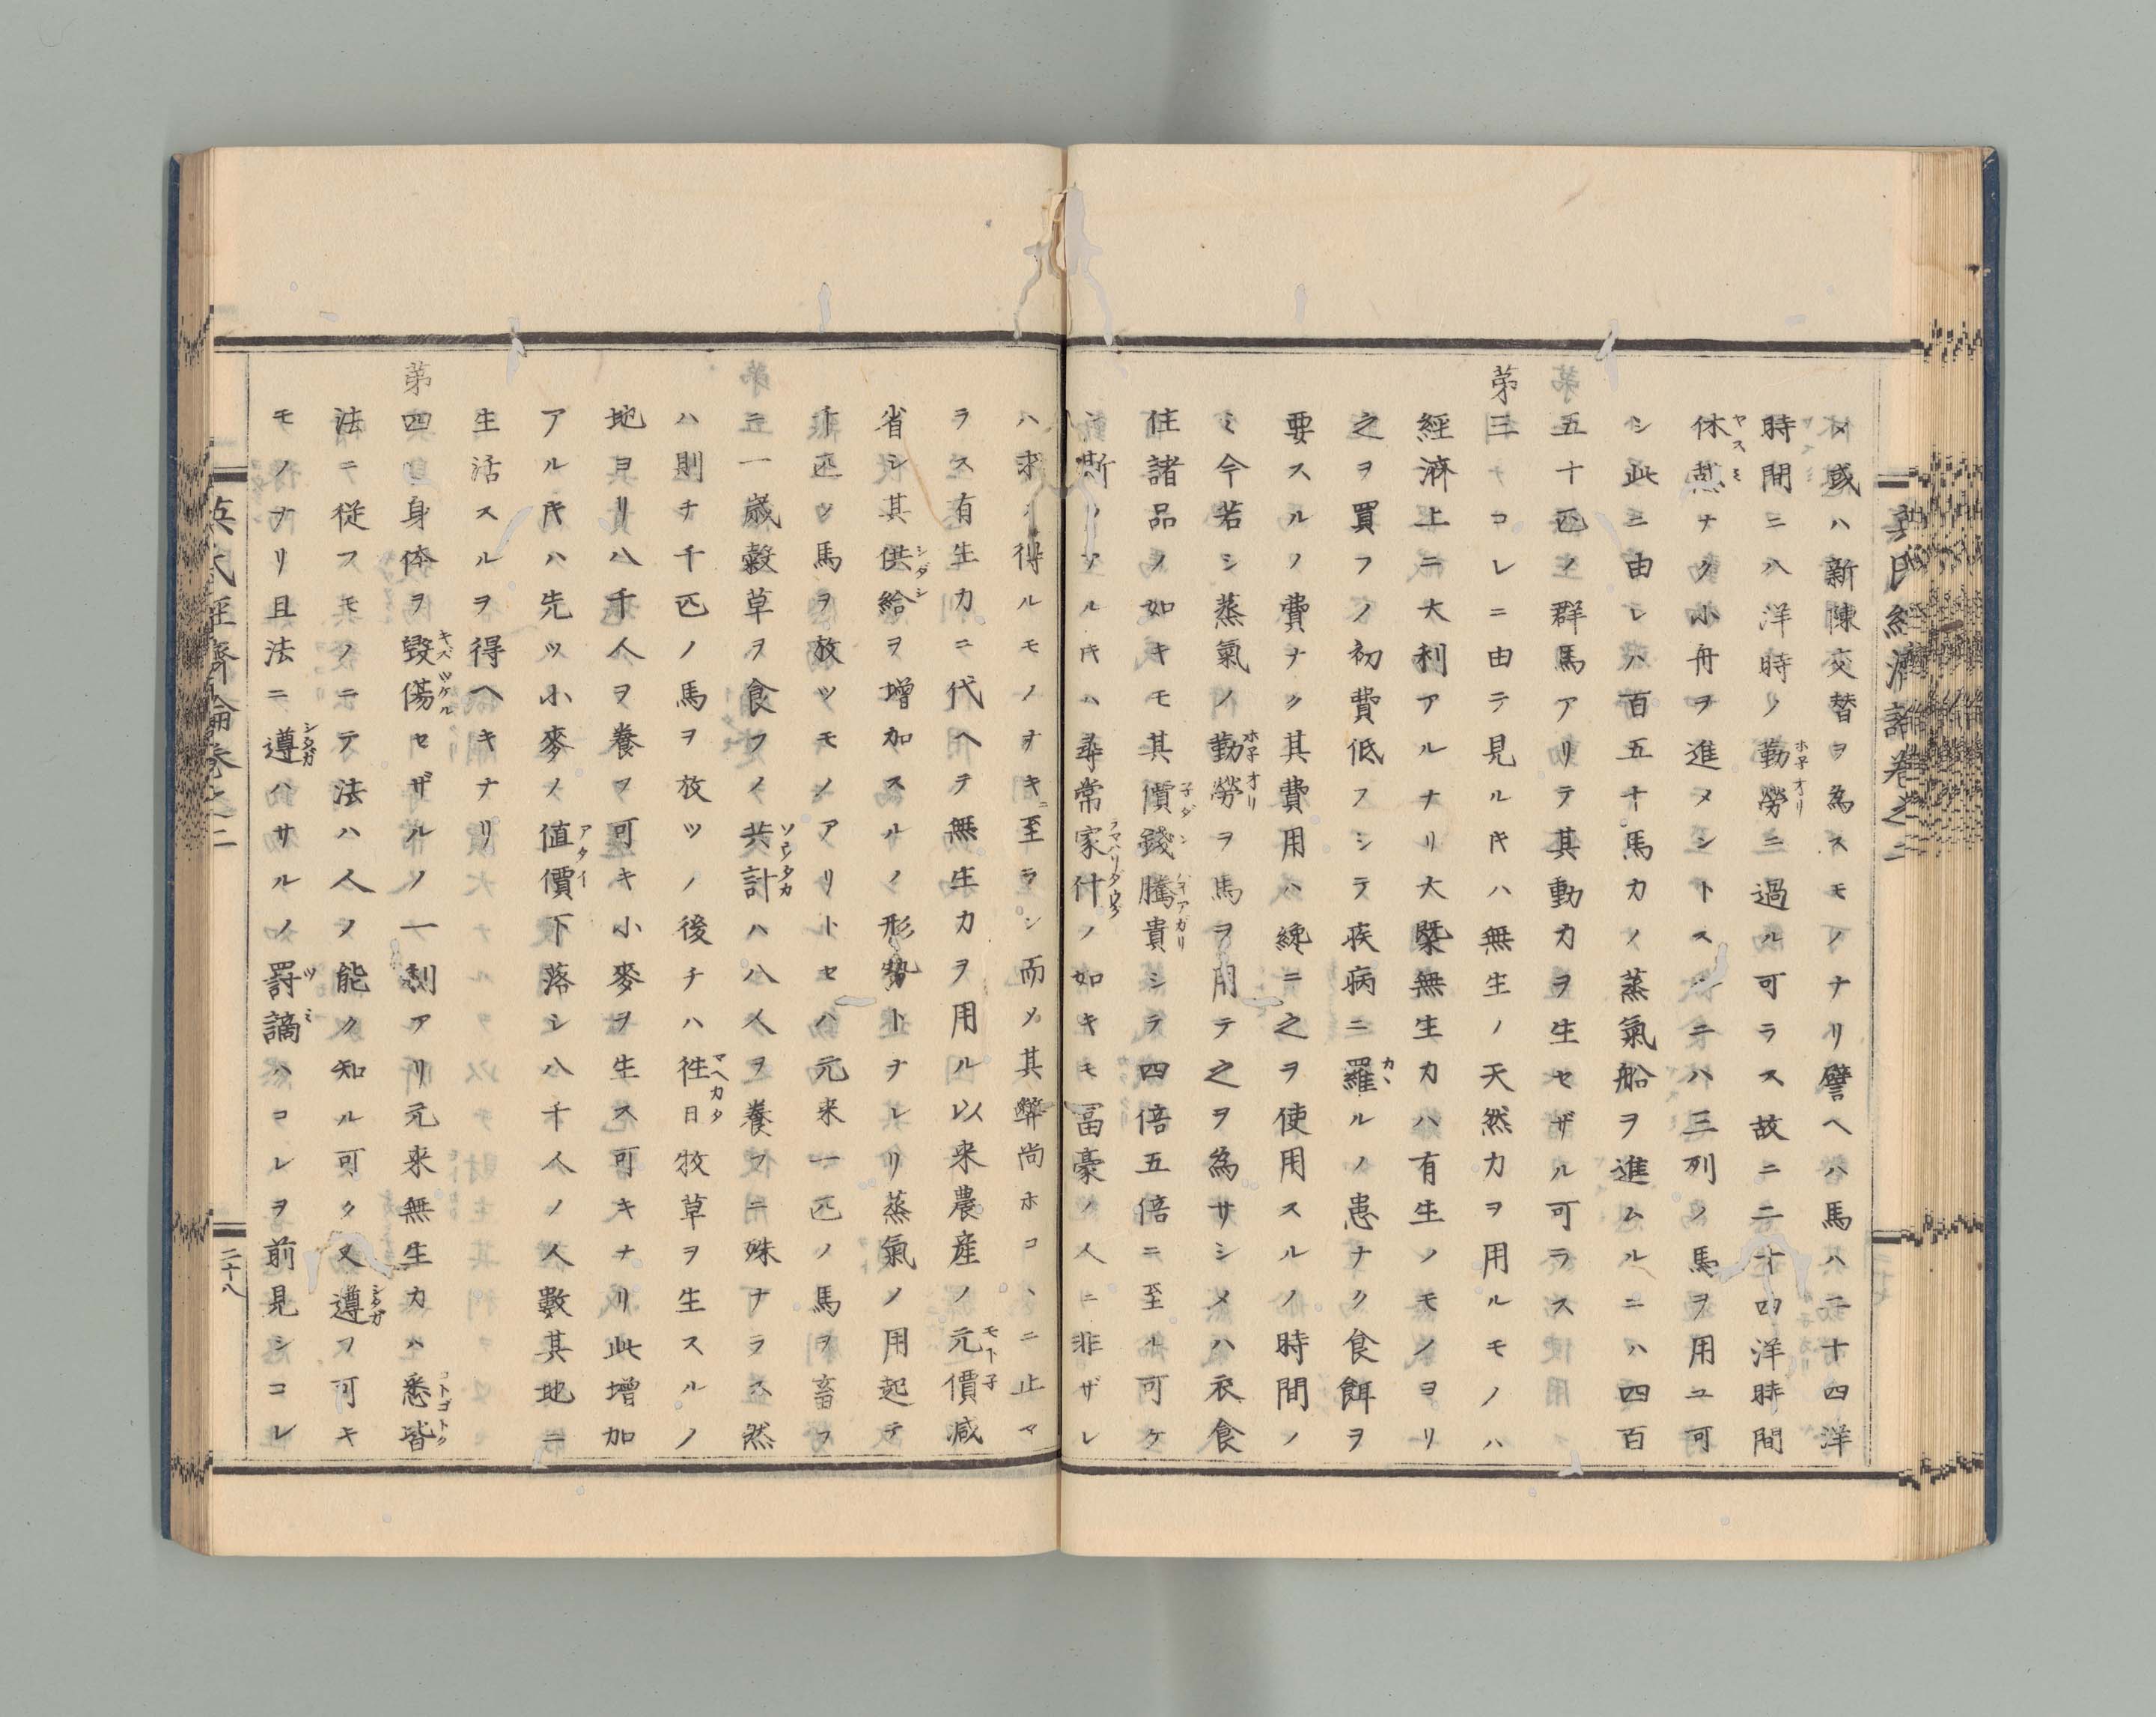 英氏經濟論卷之二
メ或ハ新陳交替ヲ為スモノナリ譬ヘハ馬ハ二十四洋
時間ニハ洋時ノ勤勞ニ過ル可ラス故ニ二十四洋時間
ホ子オリ
休憩ナク小舟ヲ進メントスルニハ三列ノ馬ヲ用ユ可
ヤスミ
シ此ニ由レハ百五十馬力ノ蒸氣船ヲ進ムルニハ四百
五十匹ノ群馬アリテ其動力ヲ生セザル可ラス
第三 コレニ由テ見ル𪜈ハ無生ノ天然力ヲ用ルモノハ
經濟上ニ大利アルナリ大槩無生力ハ有生ノモノヨリ
之ヲ買フノ初費低フシテ疾病ニ羅ルノ患ナク食餌ヲ
カヽ
要スルノ費ナク其費用ハ纔ニ之ヲ使用スルノ時間ノ
ミ今若シ蒸氣ノ勤勞ヲ馬ヲ用テ之ヲ為サシメハ衣食
ホ子オリ
住諸品ノ如キモ其價錢騰貴シテ四倍五倍ニ至ル可ケ
子ダン アガリ
斯ノ ハ尋常家什ノ如キモ冨豪ノ人ニ非ザレ
ハ求メ得ルモノナキニ至ラン而メ其弊尚ホコヽニ止マ
ラス有生力ニ代ヘテ無生力ヲ用ル以来農産ノ元價减
モト子
省シ其供給ヲ増加スルノ形勢トナレリ蒸氣ノ用起テ
シダシ
千匹ノ馬ヲ放ツモノアリトセハ元来一匹ノ馬ヲ畜フ
ニ一歳穀草ヲ食フノ共計ハ八人ヲ養フニ殊ナラス然
ハ則チ千匹ノ馬ヲ放ツノ後チハ徃日牧草ヲ生スルノ
マヘカタ
地ヨリ八千人ヲ養フ可キ小麥ヲ生ス可キナリ此増加
アル𪜈ハ先ツ小麥ノ値價下落シ八千人ノ人數其地ニ
アタイ
生活スルヲ得ヘキナリ
第四 身体ヲ毀傷セザルノ一刻アリ元来無生力ハ悉皆
キズツケル コトゴトク
法ニ従フモノニテ法ハ人ノ能ク知ル可ク又遵フ可キ
シタガ
モノナリ且法ニ遵ハサルノ罸謫ハコレヲ前見シコレ
シタガ ツミ
英氏經濟論卷之二
二十八